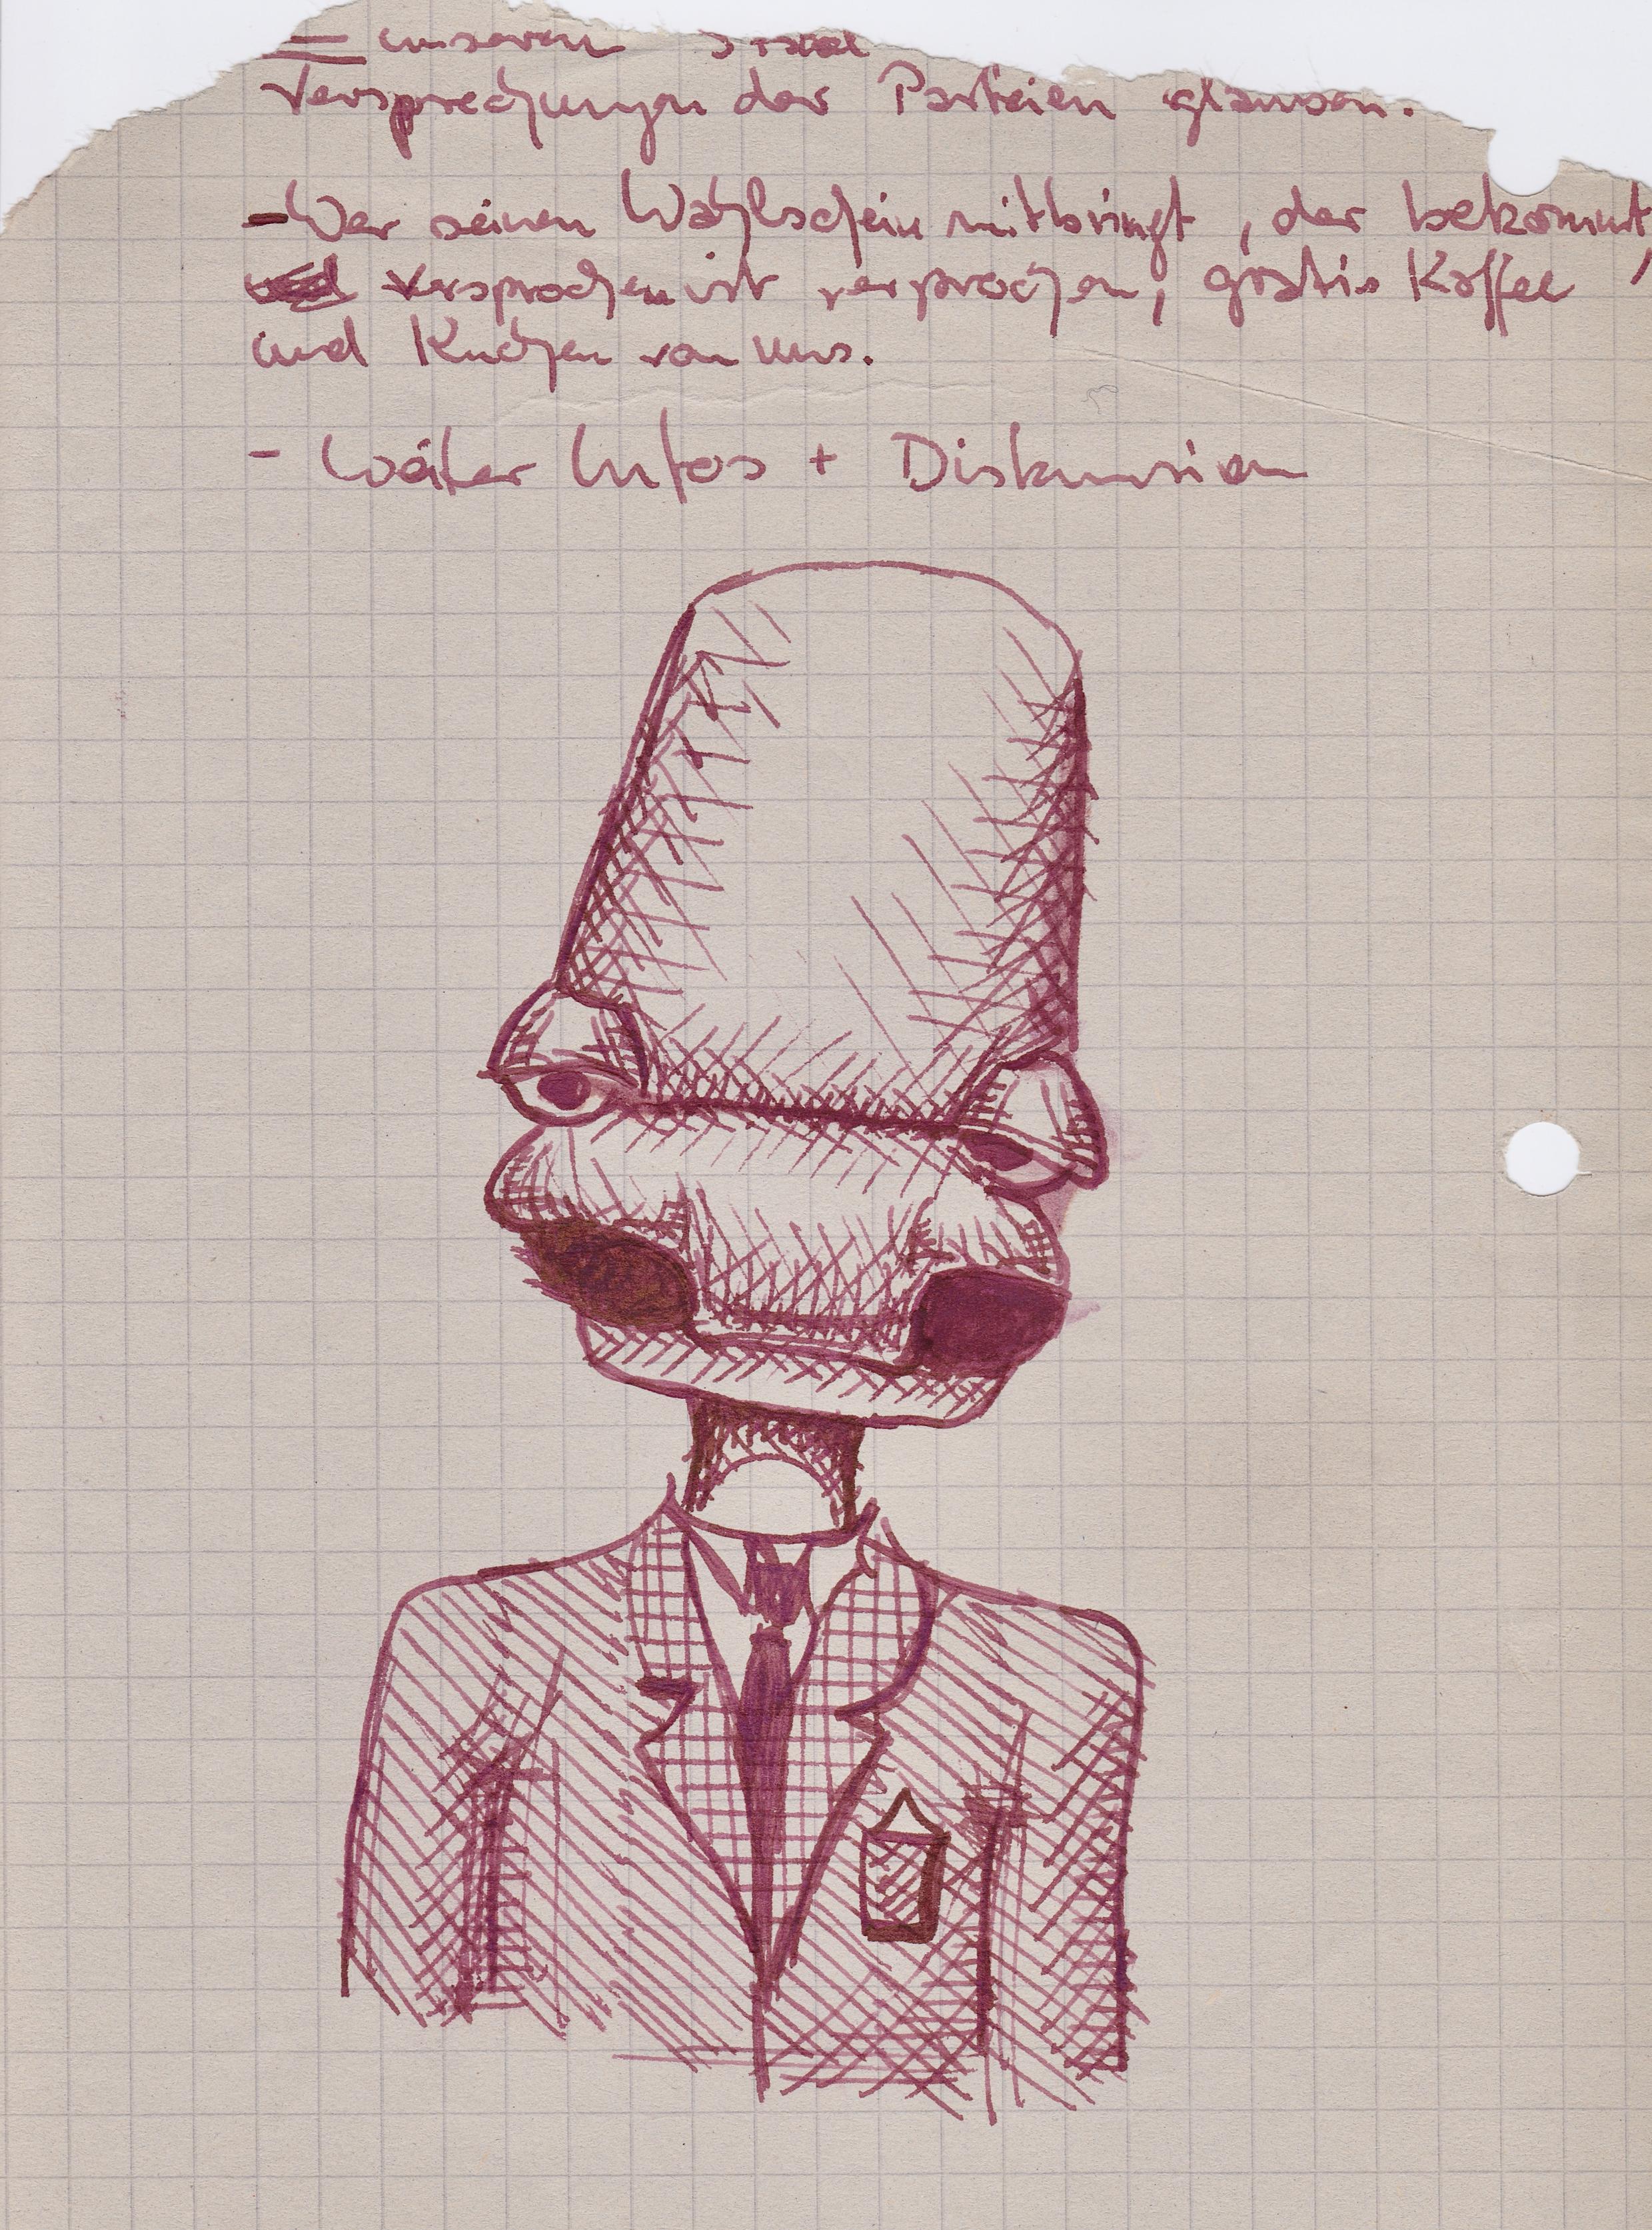 = unseren Staat
Versprechungen der Parteien glauben.
- Wer seinen Wahlschein mitbringt, der bekommt,
versprochen ist versprochen, gratis Kaffee
und Kuchen von uns.
- Weiter Infos + Diskussion